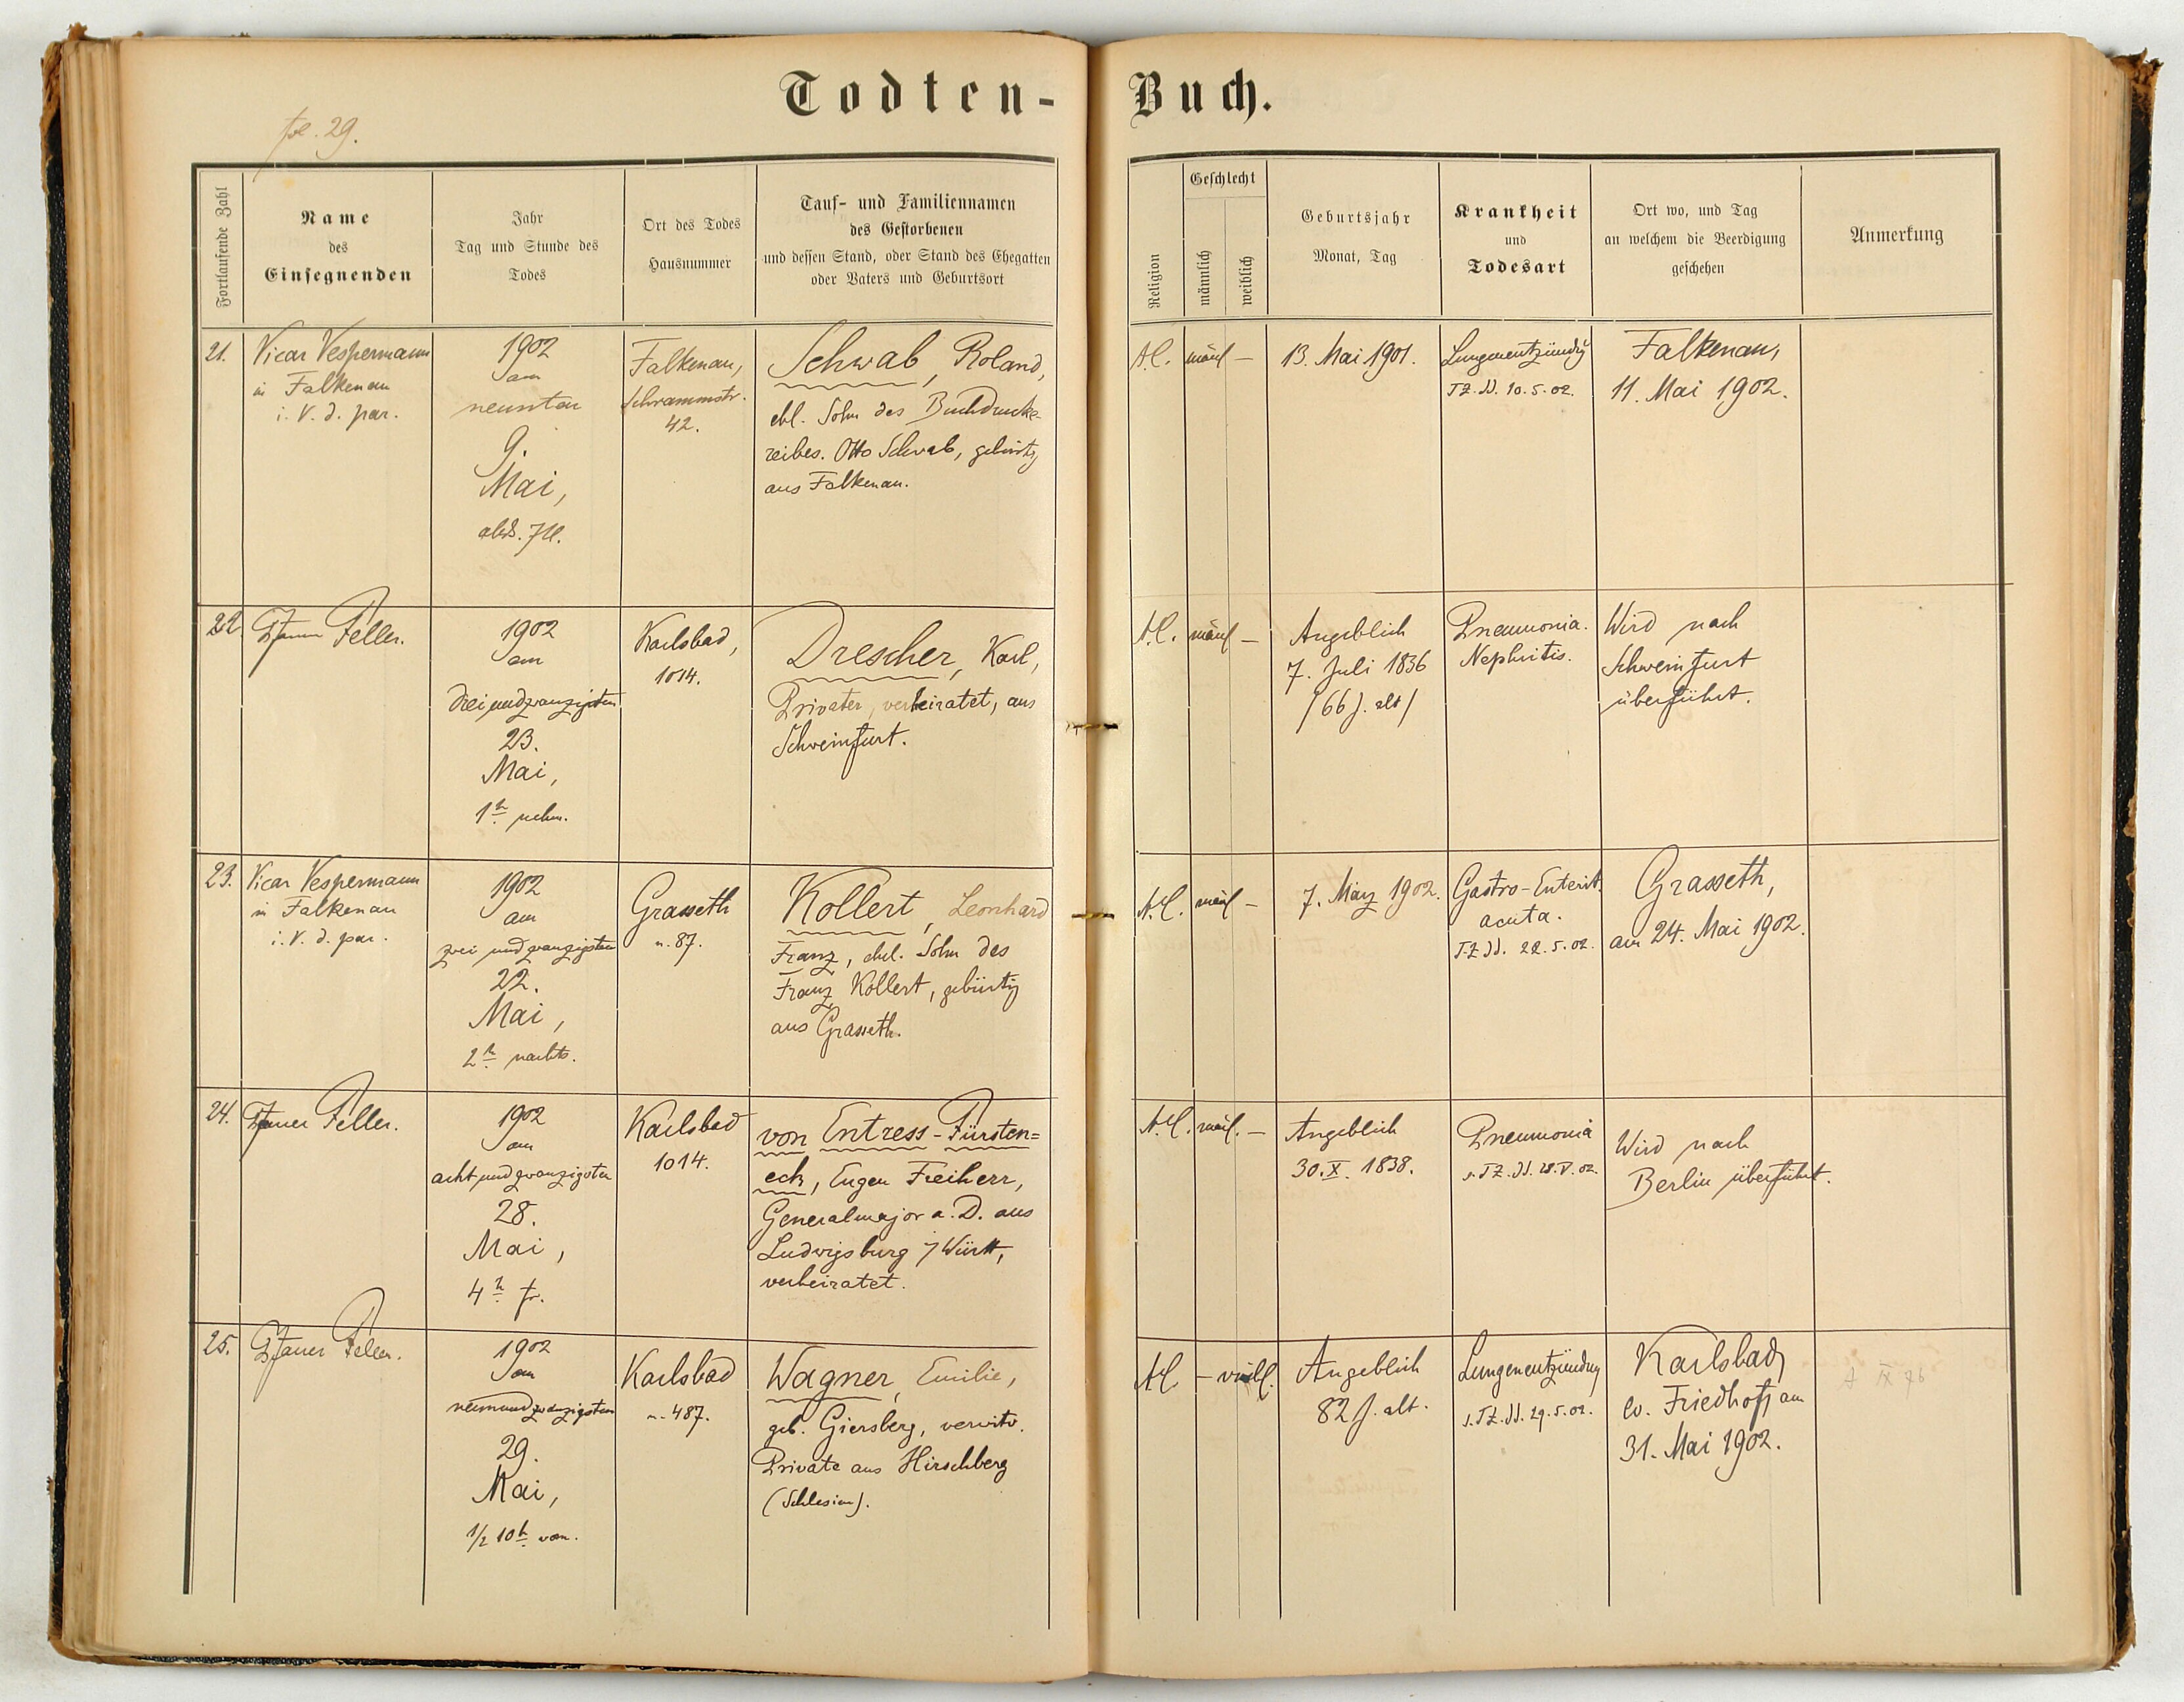 Todten-Buch.
fol. 29.
Fortlaufende Zahl
Name
des
Einsegnenden
Jahr
Tag und Stunde des
Todes
Ort des Todes
Hausnummer
Tauf- und Familiennamen
des Gestorbenen
und dessen Stand, oder Stand des Ehegatten
oder Vaters und Geburtsort
Religion
Geschlecht
männlich
weiblich
Geburtsjahr
Monat, Tag
Krankheit
und
Todesart
Ort wo, und Tag
an welchem die Beerdigung
geschehen
Anmerkung
21.
Vicar Vespermann
in Falkenau
i. V. d. par.
1902
am
neunten
9.
Mai,
abds. 7 U.
Falkenau,
Schrammstr.
42.
Schwab, Roland,
ehl. Sohn des Buchdrucke-
reibes. Otto Schwab, gebürtig
aus Falkenau.
A.C.
männl
—
13. Mai 1901.
Lungenentzündg
TZ. dd. 10.5.02.
Falkenau,
11. Mai 1902.
22
Pfarrer Feller.
1902
am
dreiundzwanzigsten
23.
Mai,
1h nchm.
Karlsbad,
1014.
Drescher, Karl,
Privatier, verheiratet, aus
Schweinfurt.
A.C.
männl
—
Angeblich
7. Juli 1836
/66 J. alt/
Pneumonia.
Nephritis.
Wird nach
Schweinfurt
überführt.
23.
Vicar Vespermann
in Falkenau
i. V. d. par.
1902
am
zweiundzwanzigsten
22.
Mai,
2h nachts.
Grasseth
n. 87.
Kollert, Leonhard
Franz, ehel. Sohn des
Franz Kollert, gebürtig
aus Grasseth.
A.C.
männl
—
7. März 1902.
Gastro-Enterit.
acuta.
TZ dd. 22.5.02.
Grasseth,
am 24. Mai 1902.
24.
Pfarrer Feller.
1902
am
achtundzwanzigsten
28.
Mai,
4h fr.
Karlsbad
1014.
von Entress-Fürsten=
eck, Eugen Freiherr,
Generalmajor a. D. aus
Ludwigsburg / Württ,
verheiratet.
A.C.
männl.
—
Angeblich
30. X. 1838.
Pneumonia
s. TZ. dd. 28.V.02.
Wird nach
Berlin überführt.
25.
Pfarrer Feller.
1902
am
neunundzwanzigsten
29.
Mai,
1/2 10h vorm.
Karlsbad
n. 487.
Wagner, Emilie,
geb. Giersberg, verwitw.
Private aus Hirschberg
(Schlesien).
AC.
—
weibl.
Angeblich
82 J. alt.
Lungenentzündung
s. TZ. dd. 29.5.02.
Karlsbad,
ev. Friedhof, am
31. Mai 1902.